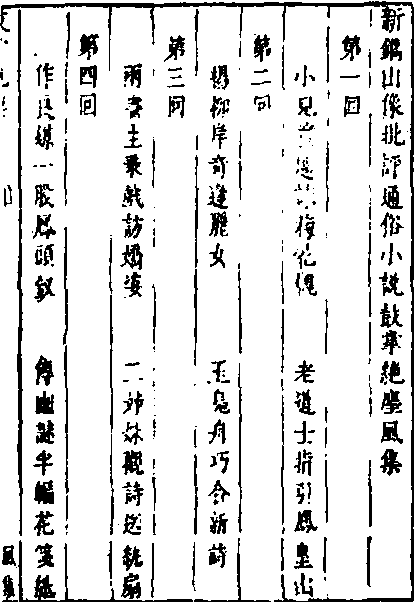 新鐫出像批評通俗小說鼓掌絕塵風集
第一回
小兒童題咏梅花觀　老道士指引鳳皇山
第二回
楊柳岸奇逢麗女　玉鳧舟巧合新詩
第三回
兩書生乘戲訪嬌姿　二姊妹觀詩送紈扇
第四回
作良媒一股鳳頭釵　傳幽謎半幅花箋紙
風集